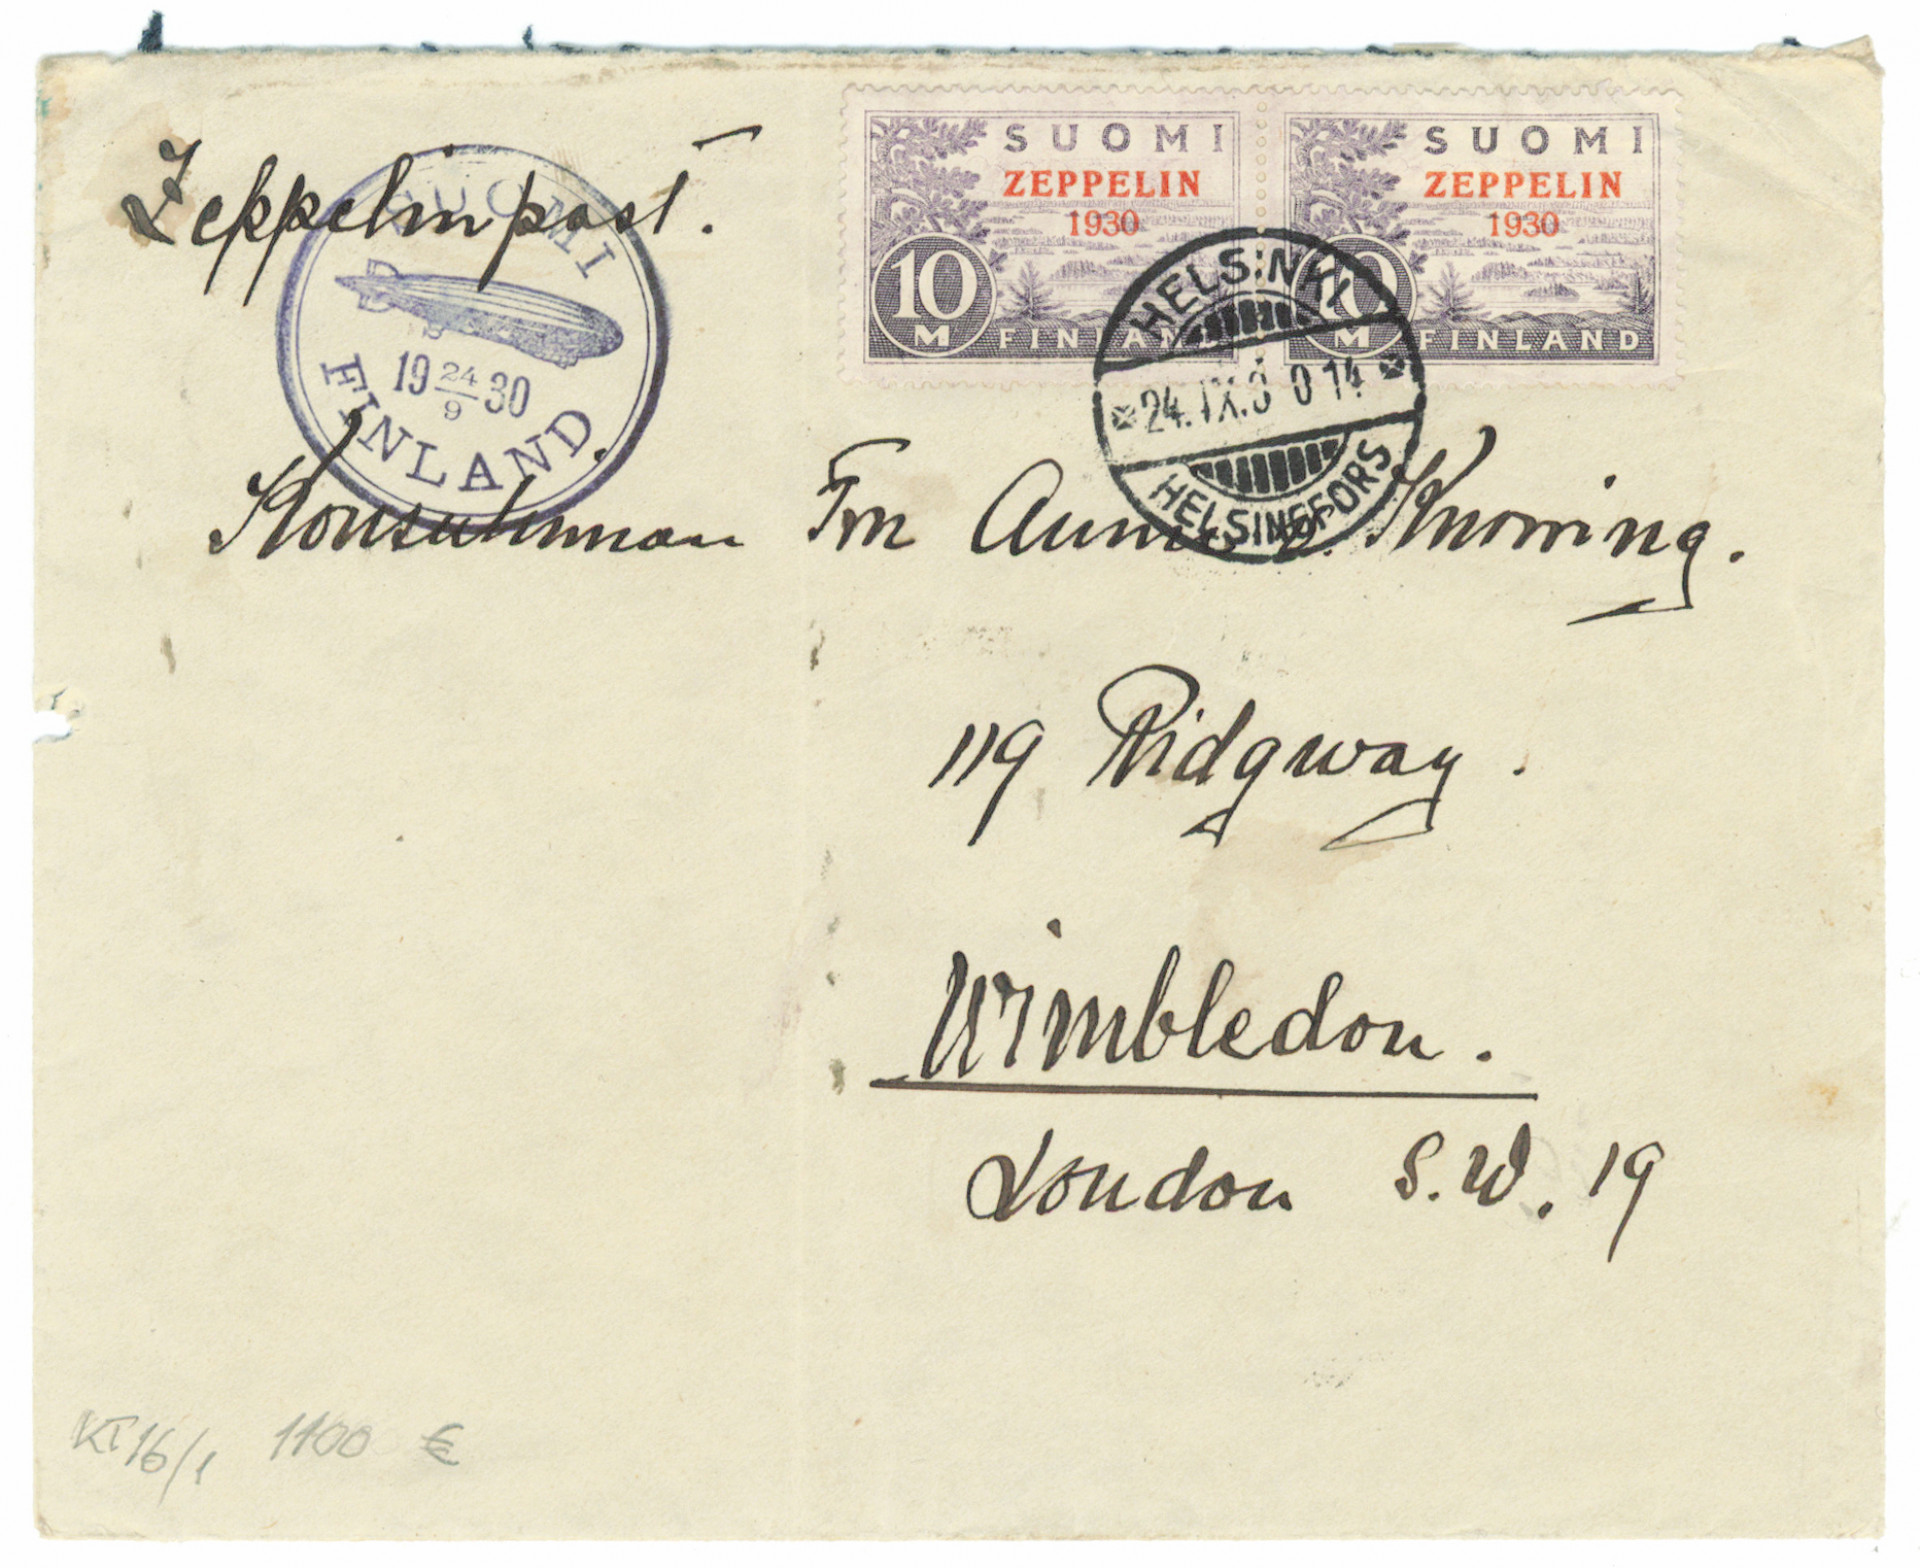 Zeppelinpost.
SUOMI
19 24/9 30
FINLAND.
SUOMI
ZEPPELIN
1930
10
M
FINLAND
SUOMI
ZEPPELIN
1930
10
M
FINLAND
HELSINKI
24.IX.3 0 14
HELSINGFORS
Konsulinnan Fru v. Knorring.
119 Ridgway.
Wimbledon.
London S.W. 19
KT16/1 1100 €